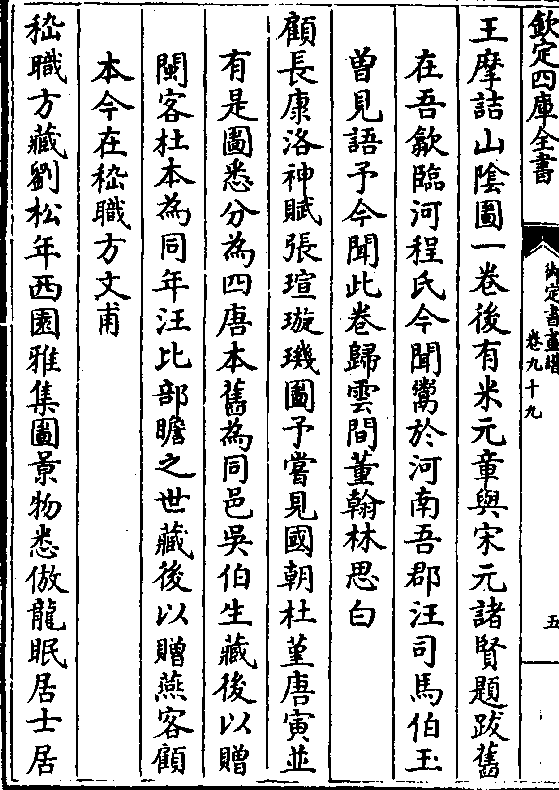 欽定四庫全書
御定書畫譜
卷九十九
五
王摩詰山陰圖一卷後有米元章與宋元諸賢題跋舊
在吾歙臨河程氏今聞鬻於河南吾郡汪司馬伯玉
曽見語予今聞此卷歸雲間董翰林思白
顧長康洛神賦張瑄璇璣圖予嘗見國朝杜堇唐寅並
有是圖悉分為四唐本舊為同邑吳伯生藏後以贈
閩客杜本為同年汪比部瞻之世藏後以贈燕客顧
本今在嵇職方文甫
嵇職方藏劉松年西園雅集圖景物悉倣龍眠居士居